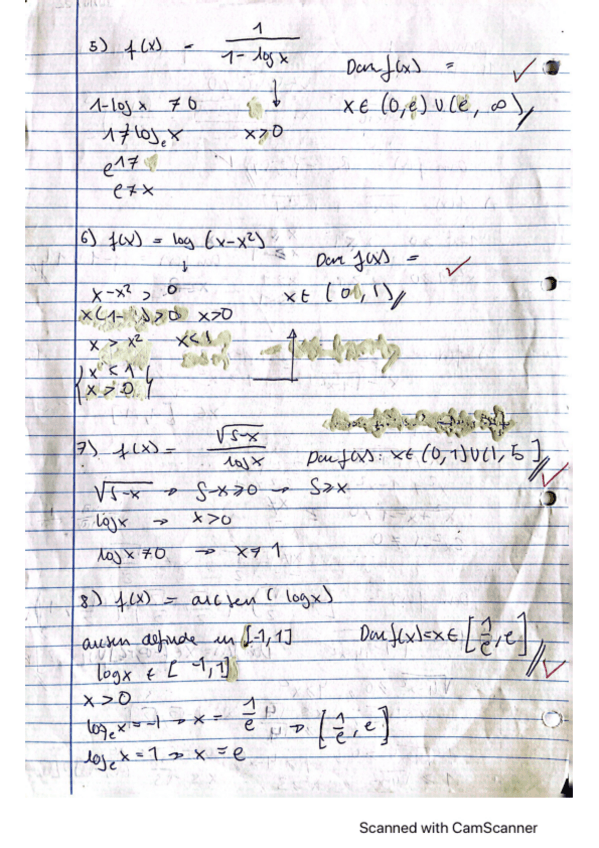 5) f(x) = 1/(1-log x)
Dom f(x) =
1-log x ≠ 0
x ∈ (0,e) ∪ (e, ∞)
1 ≠ log_e x x>0
e^1 ≠
e ≠ x
6) f(x) = log (x-x²)
Dom f(x) =
x-x² > 0
x ∈ (0, 1)
x(1- )>0 x>0
x > x² x<1
{ x < 1
x > 0
7) f(x) = √(5-x)/log x
Dom f(x): x ∈ (0,1)∪(1, 5]
√(5-x) → 5-x≥0 → 5≥x
log x → x>0
log x ≠ 0 → x ≠ 1
8) f(x) = arcsen (log x)
arcsen definida in [-1,1]
Dom f(x)=x∈[1/e, e]
log x ∈ [-1,1]
x>0
log_e x=-1 → x = 1/e → [1/e, e]
log_e x = 1 → x = e
Scanned with CamScanner